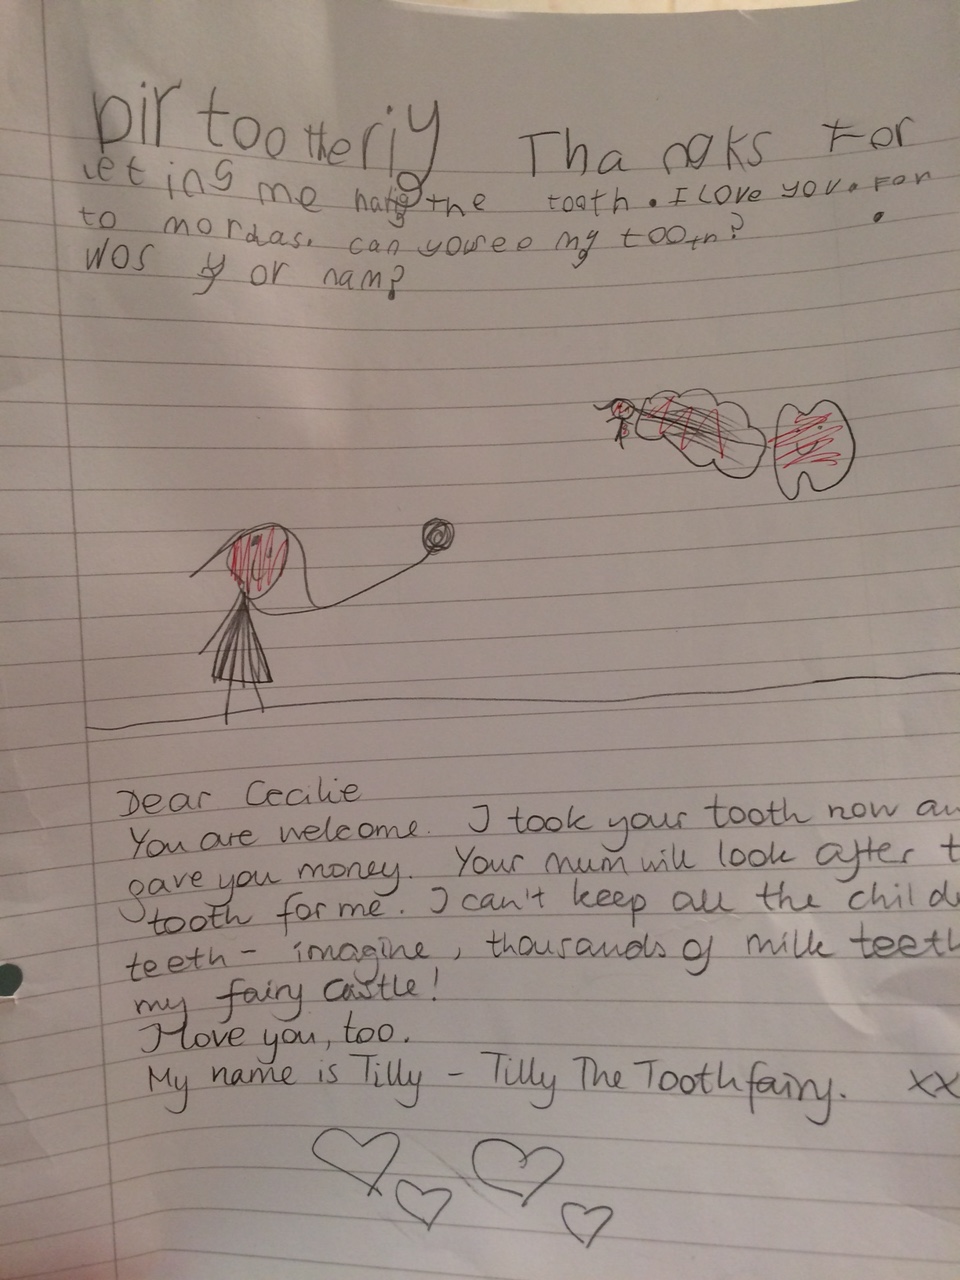 Dir tootheriy Thangks For
Leting me hatig the tooth. I Love you. For
to mordas. can yousee my tooth?
Wos yor nam?
Dear Cecilie
You are welcome. I took your tooth now an
gave you money. Your mum will look after t
tooth for me. I can't keep all the child
teeth - imagine, thousands of milk teeth
my fairy castle!
I love you, too.
My name is Tilly - Tilly The Toothfairy. xx